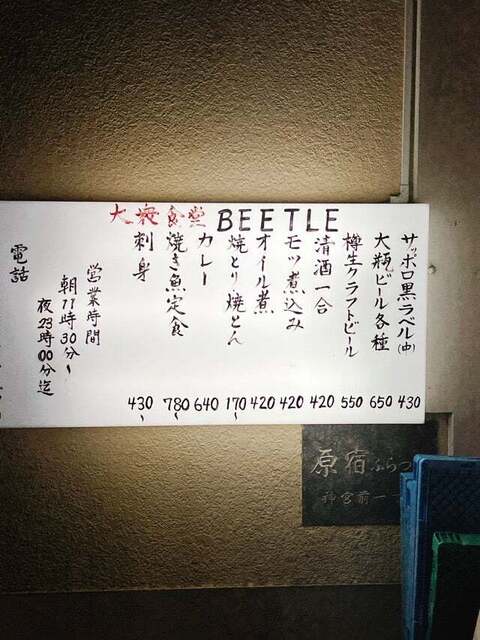 大衆食堂 BEETLE
サッポロ黒ラベル(中) 430
大瓶ビール各種 650
樽生クラフトビール 550
清酒一合 420
モツ煮込み 420
オイル煮 420
焼とり焼とん 170〜
カレー 640
焼き魚定食 780〜
刺身 430〜
営業時間
朝11時30分〜
夜23時00分迄
電話
原宿ふらっ
神宮前一